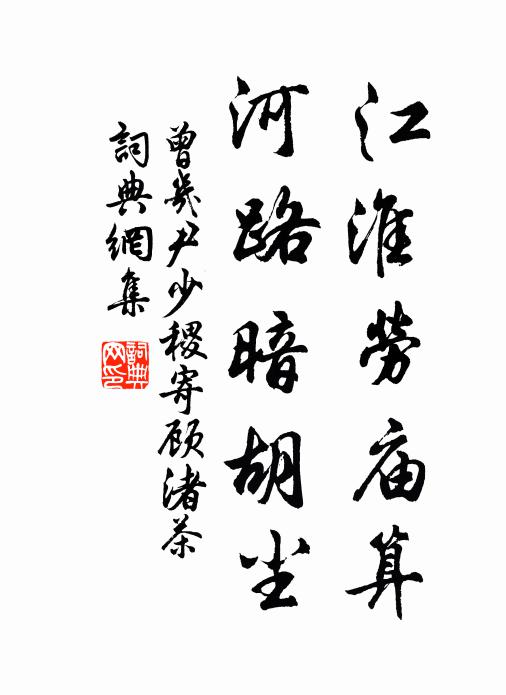 江淮勞庙算
河路暗胡尘
曾幾尹少稷寄顾渚茶
詞典網集
詞典网印